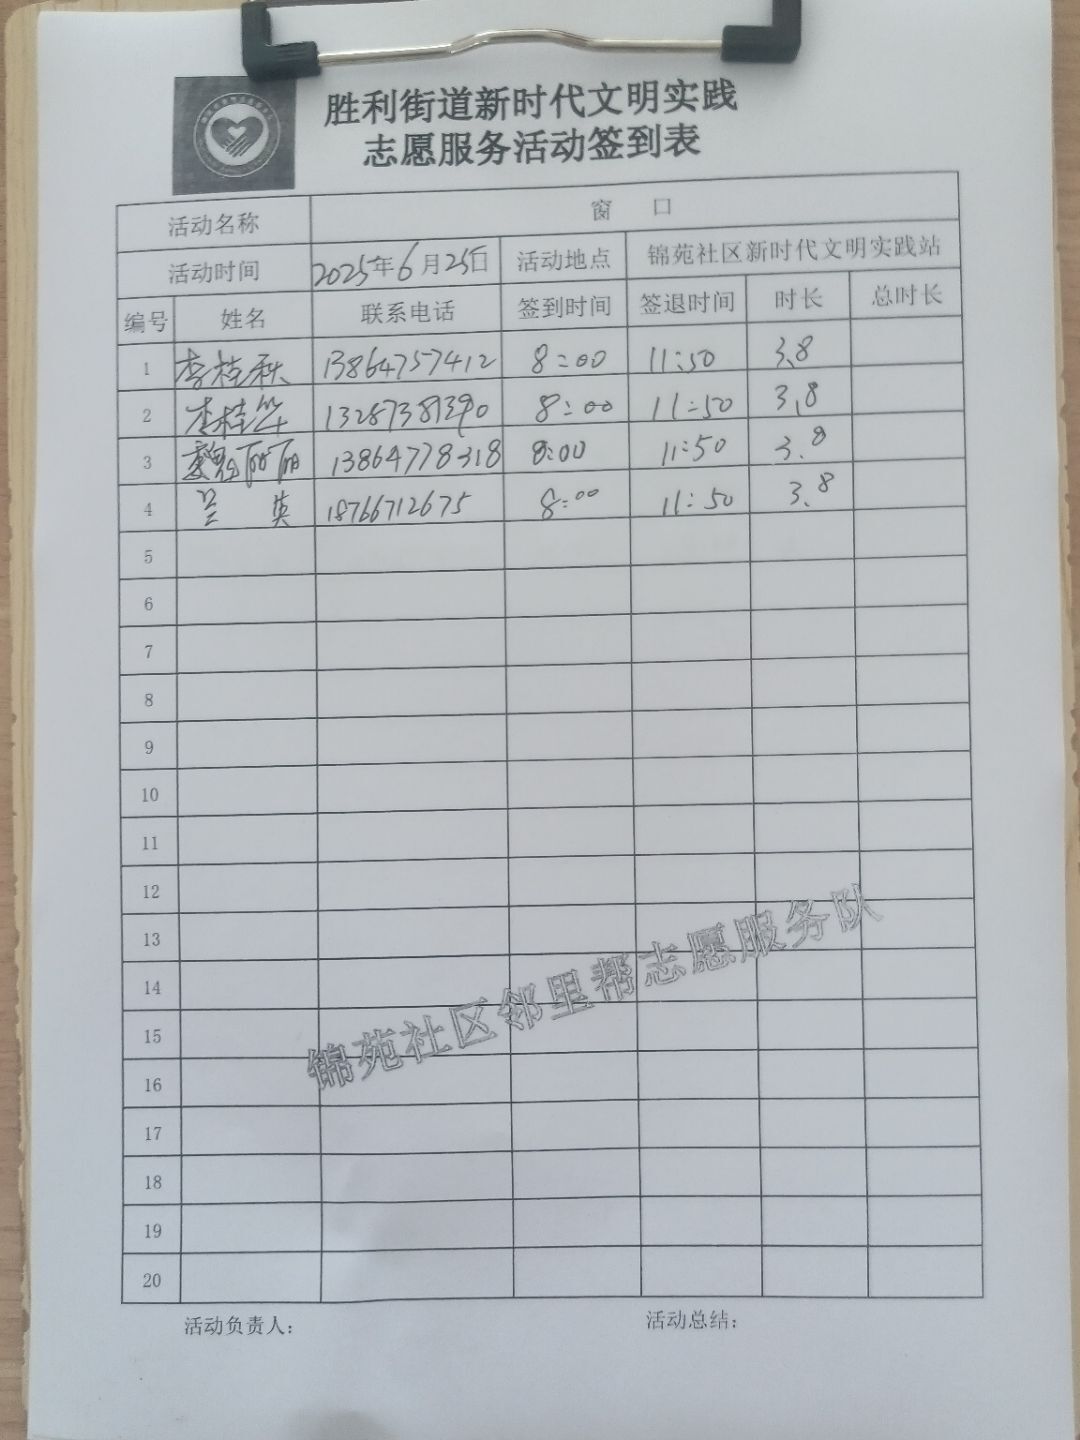 胜利街道新时代文明实践
志愿服务活动签到表
活动名称 窗 口
活动时间 2025年6月25日 活动地点 锦苑社区新时代文明实践站
编号 姓名 联系电话 签到时间 签退时间 时长 总时长
1 李桂秋 13864757412 8:00 11:50 3.8
2 李桂华 13287381390 8:00 11:50 3.8
3 魏丽丽 13864778318 8:00 11:50 3.8
4 兰英 18766712675 8:00 11:50 3.8
5
6
7
8
9
10
11
12
13
14
15
16
17
18
19
20
锦苑社区邻里帮志愿服务队
活动负责人: 活动总结: